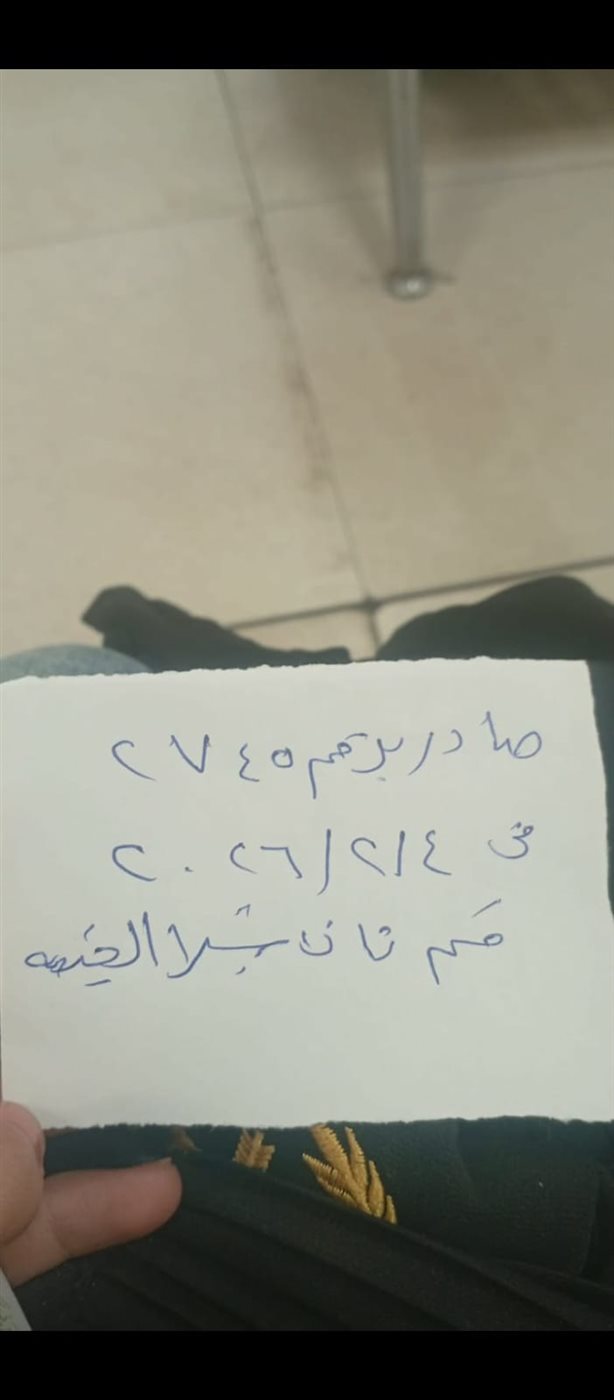 صادر برقم ٢٧٤٥
فى ٢٠٢٦/٢/٤
قسم ثان شبرا الخيمه